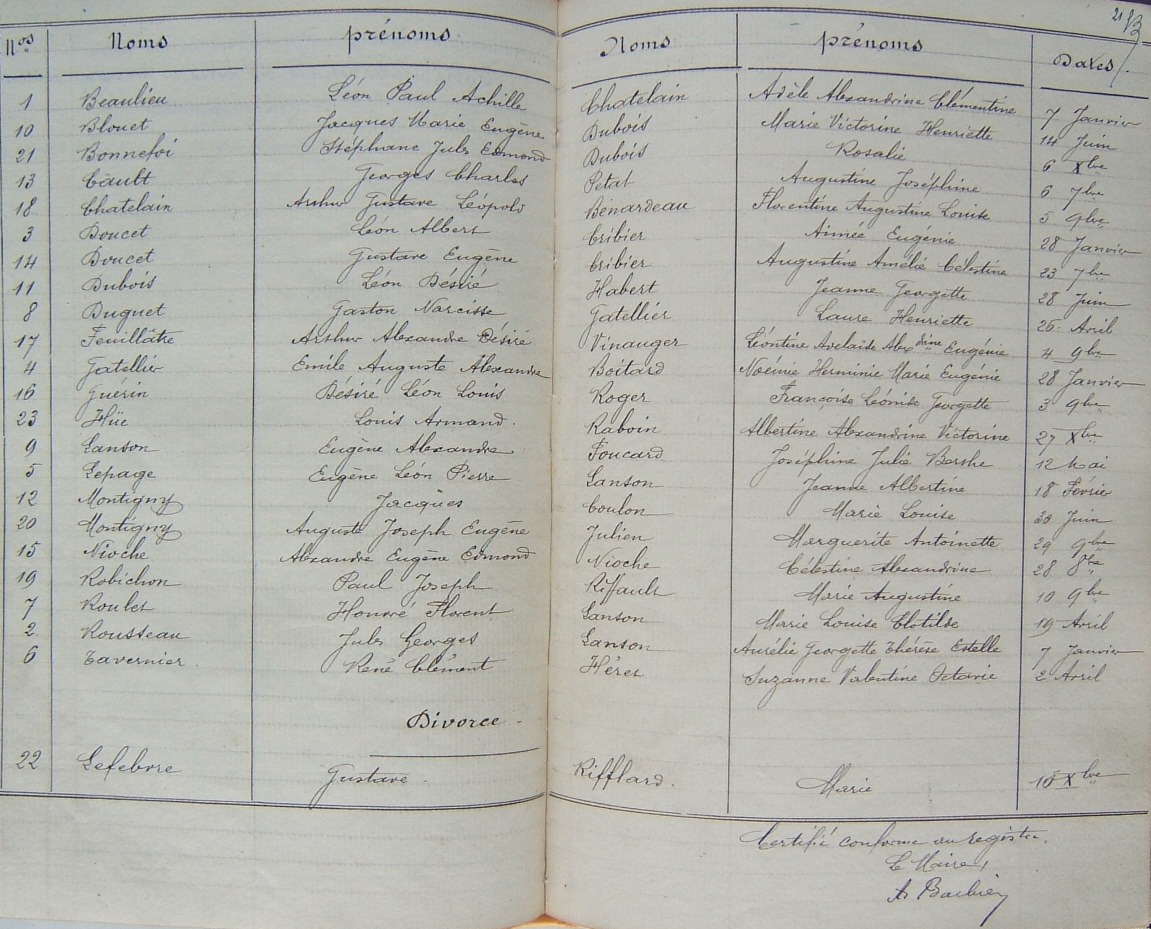 Nos Noms prénoms Noms prénoms Dates
1 Beaulieu Léon Paul Achille Chatelain Adèle Alexandrine Clémentine 7 Janvier
10 Blouet Jacques Marie Eugène Dubois Marie Victorine Henriette 14 Juin
21 Bonnefoi Stéphane Jules Edmond Dubois Rosalie 6 Xbre
13 Cault Georges Charles Petat Augustine Joséphine 6 7bre
18 Chatelain Arthur Gustave Léopold Bénardeau Florentine Augustine Louise 5 9bre
3 Doucet Léon Albert Cribier Aimée Eugénie 28 Janvier
14 Doucet Gustave Eugène Cribier Augustine Amélie Célestine 23 7bre
11 Dubois Léon Désiré Habert Jeanne Georgette 28 Juin
8 Duguet Gaston Narcisse Gatellier Laure Henriette 26 Avril
17 Feuillâtre Arthur Alexandre Désiré Vinauger Léontine Adelaide Alexdrine Eugénie 4 9bre
4 Gatellier Emile Auguste Alexandre Boitard Noémie Herminie Marie Eugénie 28 Janvier
16 Guérin Désiré Léon Louis Roger Françoise Léonise Georgette 3 9bre
23 Hüe Louis Armand. Raboin Albertine Alexandrine Victorine 27 Xbre
9 Lanson Eugène Alexandre Foucard Joséphine Julie Berthe 12 Mai
5 Lepage Eugène Léon Pierre Lanson Jeanne Albertine 18 Février
12 Montigny Jacques Coulon Marie Louise 30 Juin
20 Montigny Auguste Joseph Eugène Julien Marguerite Antoinette 29 9bre
15 Nioche Alexandre Eugène Edmond Nioche Célestine Alexandrine 28 8bre
19 Robichon Paul Joseph Riffault Marie Augustine 10 9bre
7 Roulet Honoré Florent Lanson Marie Louise Clotilde 19 Avril
2 Rousseau Jules Georges Lanson Aurélie Georgette Thérèse Estelle 7 Janvier
6 Tavernier René Clément Héret Suzanne Valentine Octavie 2 Avril
Divorce
22 Lefebvre Gustave. Rifflard. Marie 16 Xbre
Certifié conforme au registre.
Le Maire,